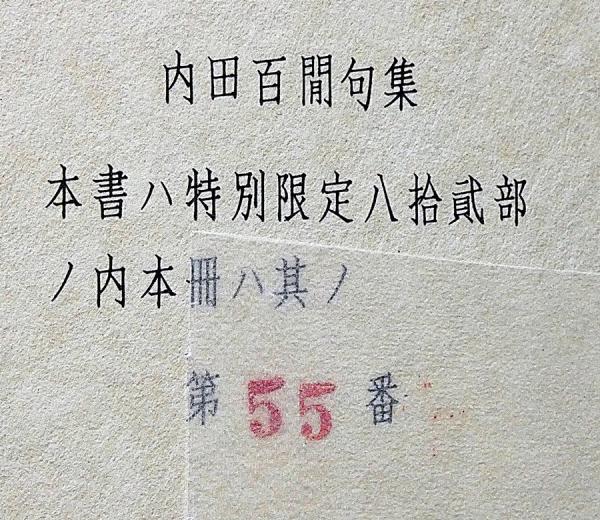 内田百閒句集
本書ハ特別限定八拾貳部
ノ内本冊ハ其ノ
第55番